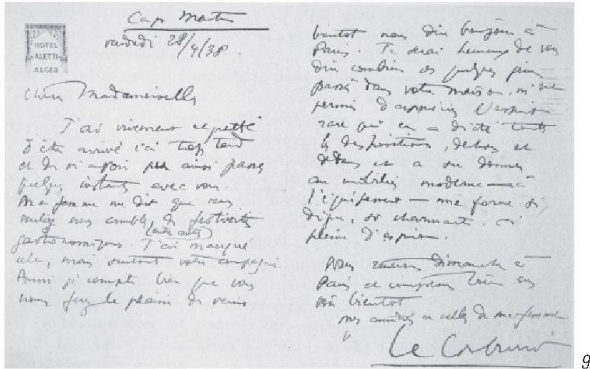 HOTEL
ALETTI
ALGER
Cap Martin
vendredi 28/4/38.
Chère Mademoiselle
J'ai vivement regretté
d'être arrivé ici trop tard
et de n'avoir pu ainsi passer
quelques instants avec vous.
Ma femme me dit que vous
nous de festivités
(entre autres)
gastronomiques. J'ai manqué
cela, mais surtout votre compagnie
Aussi je compte bien que vous
nous ferez le plaisir de venir
bientôt nous dire bonjour à
Paris. Je serai heureux de vous
dire combien ces quelques jours
passés dans votre maison, m'ont
permis d'apprécier l'esprit
rare qui en a dicté toutes
les dispositions, dehors et
dedans et a su donner
au mobilier moderne — à
l'équipement — une forme si
digne, si charmante, si
pleine d'esprit.
Nous rentrons dimanche à
Paris et comptons bien vous
voir bientôt
mes amitiés et celles de ma femme
Le Corbusier
9